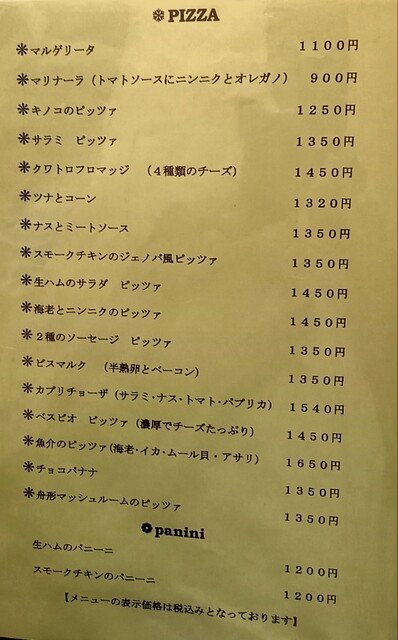 ❄ PIZZA
＊マルゲリータ １１００円
＊マリナーラ（トマトソースにニンニクとオレガノ） ９００円
＊キノコのピッツァ １２５０円
＊サラミ　ピッツァ １３５０円
＊クワトロフロマッジ　（４種類のチーズ） １４５０円
＊ツナとコーン １３２０円
＊ナスとミートソース １３５０円
＊スモークチキンのジェノバ風ピッツァ １３５０円
＊生ハムのサラダ　ピッツァ １４５０円
＊海老とニンニクのピッツァ １４５０円
＊２種のソーセージ　ピッツァ １３５０円
＊ビスマルク　（半熟卵とベーコン） １３５０円
＊カプリチョーザ（サラミ・ナス・トマト・パプリカ） １５４０円
＊ベスビオ　ピッツァ（濃厚でチーズたっぷり） １４５０円
＊魚介のピッツァ（海老・イカ・ムール貝・アサリ） １６５０円
＊チョコバナナ １３５０円
＊舟形マッシュルームのピッツァ １３５０円
❁panini
生ハムのパニーニ １２００円
スモークチキンのパニーニ １２００円
【メニューの表示価格は税込みとなっております】